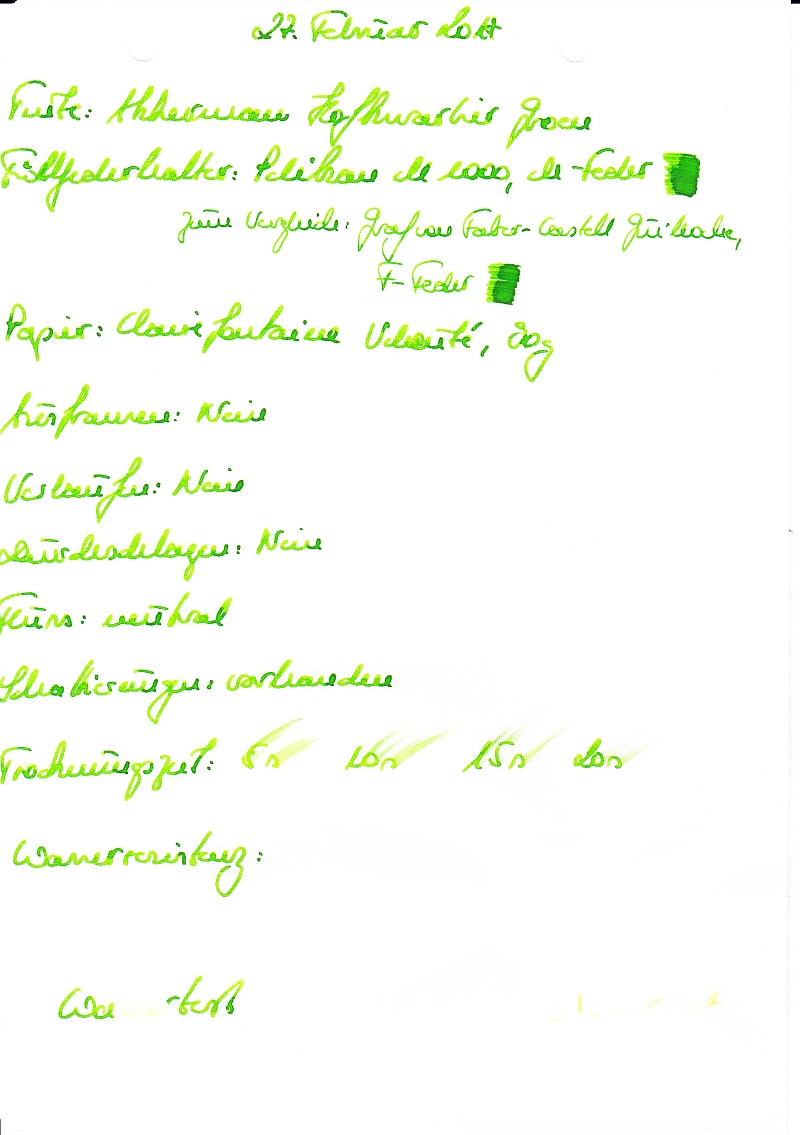 27. Februar 2017
Tinte: Akkerman Hofkwartier Groen
Füllfederhalter: Pelikan M 1000, M-Feder
zum Vergleich: Graf von Faber-Castell Guilloche,
F-Feder
Papier: Clairefontaine Velouté, 90g
Ausfransen: Nein
Verlaufen: Nein
Durchschlagen: Nein
Fluss: neutral
Schattierungen: vorhanden
Trocknungszeit: 5s 10s 15s 20s
Wasserresistenz: